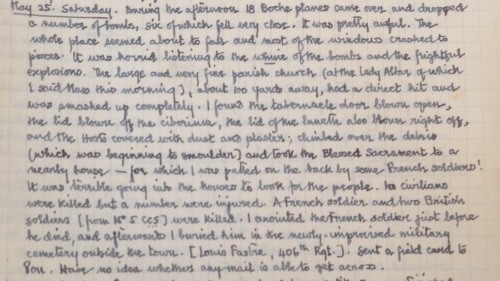 May 25. Saturday. During the afternoon 18 Boche planes came over and dropped
a number of bombs, six of which fell very close. It was pretty awful. The
whole place seemed about to fall and most of the windows crashed to
pieces. It was horrid listening to the whine of the bombs and the frightful
explosions. The large and very fine parish church (at the Lady Altar of which
I said Mass this morning), about 100 yards away, had a direct hit and
was smashed up completely. I found the tabernacle door blown open,
the lid blown off the ciborium, the lid of the lunette also blown right off,
and the Hosts covered with dust and plaster; climbed over the debris
(which was beginning to smoulder) and took the Blessed Sacrament to a
nearby house — for which I was patted on the back by some French soldiers!
It was terrible going into the houses to look for the people. No civilians
were killed but a number were injured. A French soldier and two British
soldiers (from No 5 CCS) were killed. I anointed the French soldier just before
he died, and afterwards I buried him in the newly-improvised military
cemetery outside the town. [Louis Fastre, 406th Rgt.]. Sent a field card to
Pou. Have no idea whether any mail is able to get across.